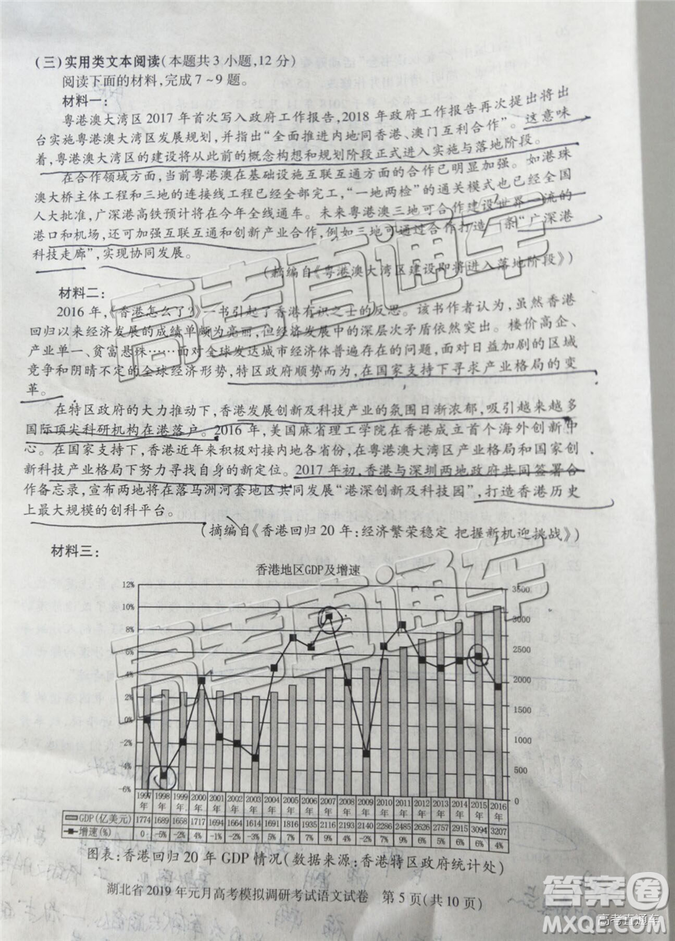 (三)实用类文本阅读(本题共3小题,12分)
阅读下面的材料,完成7~9题。
材料一:
粤港澳大湾区2017年首次写入政府工作报告,2018年政府工作报告再次提出将出
台实施粤港澳大湾区发展规划,并指出“全面推进内地同香港、澳门互利合作”。这意味
着,粤港澳大湾区的建设将从此前的概念构想和规划阶段正式进入实施与落地阶段。
在合作领域方面,当前粤港澳在基础设施互联互通方面的合作已明显加强。如港珠
澳大桥主体工程和三地的连接线工程已经全部完工,“一地两检”的通关模式也已经全国
人大批准,广深港高铁预计将在今年全线通车。未来粤港澳三地可合作建设世界一流的
港口和机场,还可加强互联互通和创新产业合作,例如三地可通过合作打造一条“广深港
科技走廊”,实现协同发展。
(摘编自《粤港澳大湾区建设即将进入落地阶段》)
材料二:
2016年,《香港怎么了?》一书引起了香港有识之士的反思。该书作者认为,虽然香港
回归以来经济发展的成绩单颇为亮丽,但发展中的深层次矛盾依然突出。楼价高企、
产业单一、贫富悬殊……面对全球发达城市经济体普遍存在的问题,面对日益加剧的区域
竞争和阴晴不定的全球经济形势,特区政府顺势而为,在国家支持下寻求产业格局的变
革。
在特区政府的大力推动下,香港发展创新及科技产业的氛围日渐浓郁,吸引越来越多
国际顶尖科研机构在港落户。2016年,美国麻省理工学院在香港成立首个海外创新中
心。在国家支持下,香港近年来积极对接内地各省份,在粤港澳大湾区产业格局和国家创
新科技产业格局下努力寻找自身的新定位。2017年初,香港与深圳两地政府共同签署合
作备忘录,宣布两地将在落马洲河套地区共同发展“港深创新及科技园”,打造香港历史
上最大规模的创科平台。
(摘编自《香港回归20年:经济繁荣稳定 把握新机迎挑战》)
材料三:
香港地区GDP及增速
12% 10% 8% 6% 4% 2% 0% -2% -4% -6%
3500 3000 2500 2000 1500 1000 500 0
1997年 1998年 1999年 2000年 2001年 2002年 2003年 2004年 2005年 2006年 2007年 2008年 2009年 2010年 2011年 2012年 2013年 2014年 2015年 2016年
GDP(亿美元) 1774 1689 1658 1717 1694 1663 1614 1691 1816 1936 2116 2193 2140 2286 2485 2626 2757 2915 3094 3207
增速(%) 0 -5% -2% 4% -1% -2% 5% 7% 6% 9% 4% 7% 9% 6% 5% 6% 6% 4%
图表:香港回归20年GDP情况(数据来源:香港特区政府统计处)
湖北省2019年元月高考模拟调研考试语文试卷 第5页(共10页)
高考直通车
高考直通车
答案圈
MXQE.COM
高考直通车